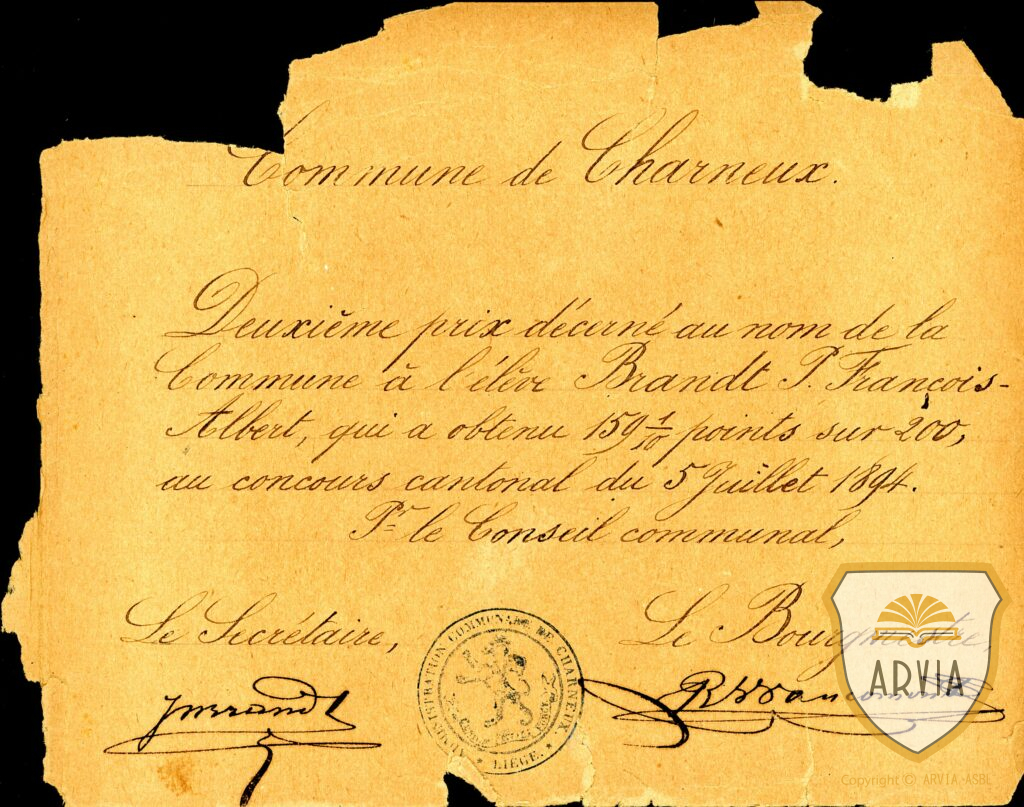 Commune de Charneux.
Deuxième prix décerné au nom de la
Commune à l'élève Brandt P. François-
Albert, qui a obtenu 159 1/10 points sur 200,
au concours cantonal du 5 Juillet 1894.
Pr le Conseil communal,
Le Secrétaire,
Le Bourgmestre,
ADMINISTRATION COMMUNALE DE CHARNEUX
* LIÉGE. *
ARVIA
Copyright © ARVIA-ASBL